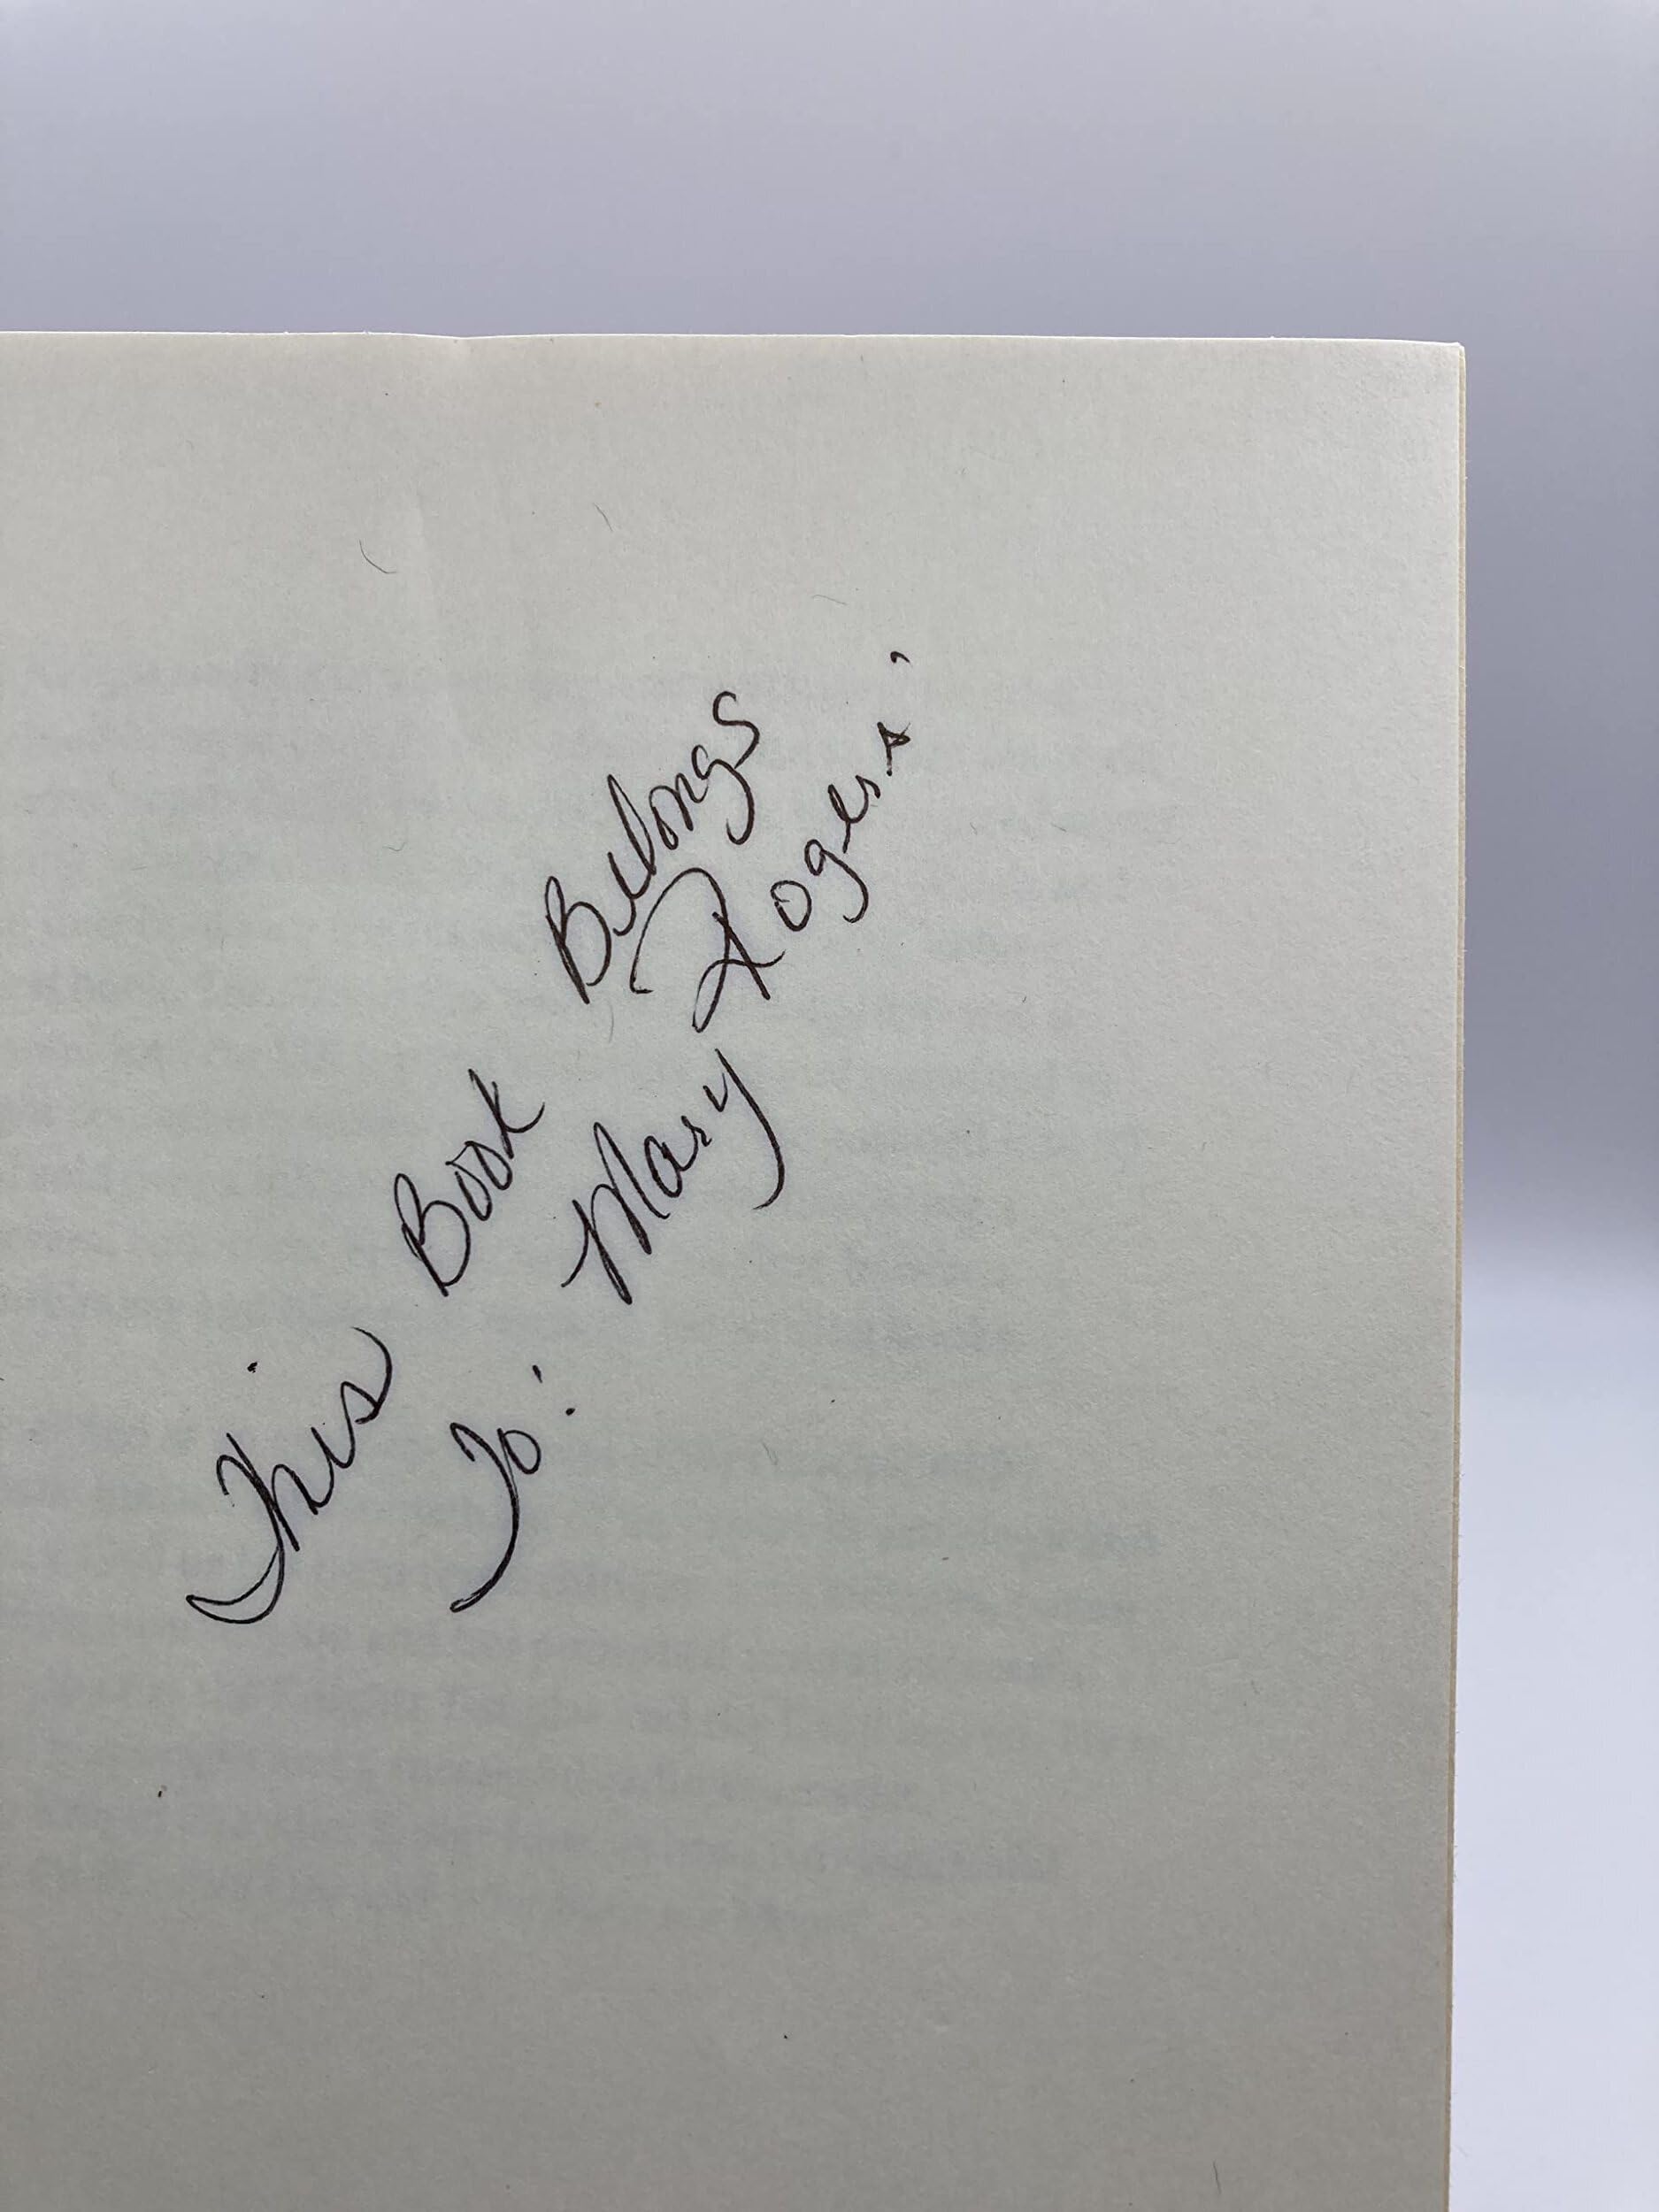 This Book Belongs
To: Mary Rogers